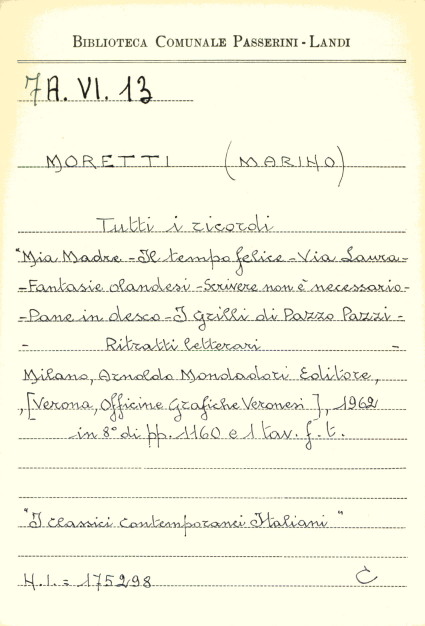 BIBLIOTECA COMUNALE PASSERINI - LANDI
7A. VI. 13
MORETTI (MARINO)
Tutti i ricordi
"Mia Madre - Il tempo felice - Via Laura -
- Fantasie olandesi - Scrivere non è necessario -
- Pane in desco - I Grilli di Pazzo Pazzi -
- Ritratti letterari -
Milano, Arnoldo Mondadori Editore,
, [Verona, Officine Grafiche Veronesi], 1962
in 8° di pp. 1160 e 1 tav. f. t.
"I Classici Contemporanei Italiani"
N. I. = 175298 C